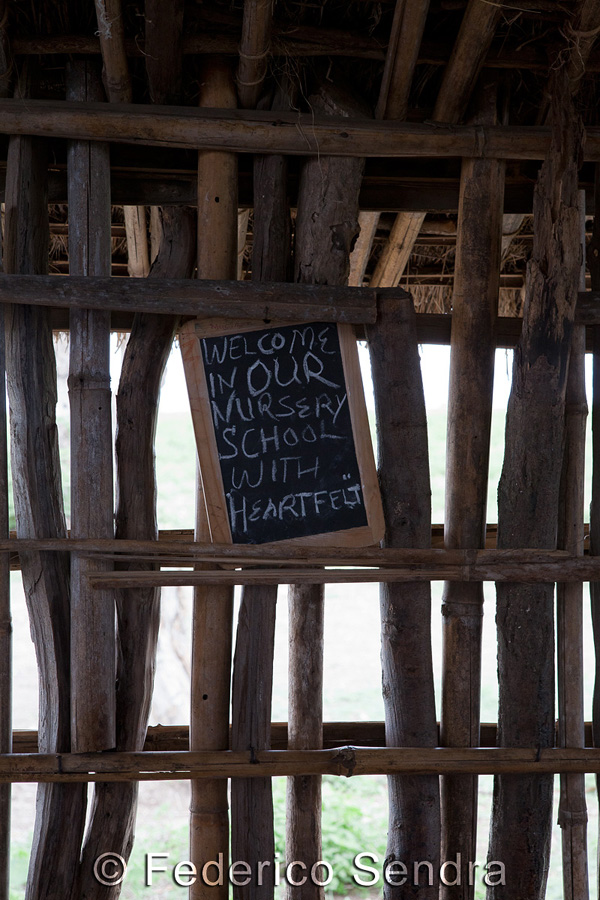 WELCOME
IN OUR
NURSERY
SCHOOL
WITH
"HEARTFELT"
© Federico Sendra